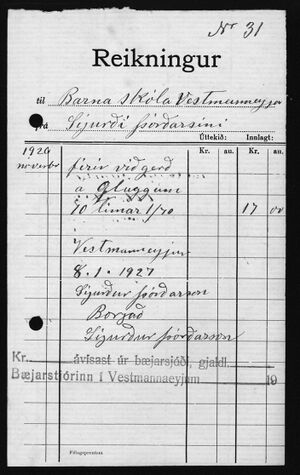 Nr 31
Reikningur
til Barna skóla Vestmannaeyja
frá Sigurði Þórðarsini
Úttekið: Innlagt:
Kr. au. Kr. au.
1926
november firir viðgerd
á Gluggum
10 tímar 1/70 17 00
Vestmannaeyjum
8. 1. 1927
Sigurdur Þórdarson
Borgad
Sigurdur Þórdarson
Kr. ávísast úr bæjarsjóði, gjaldl.
Bæjarstjórinn í Vestmannaeyjum 19
Félagsprentsm.